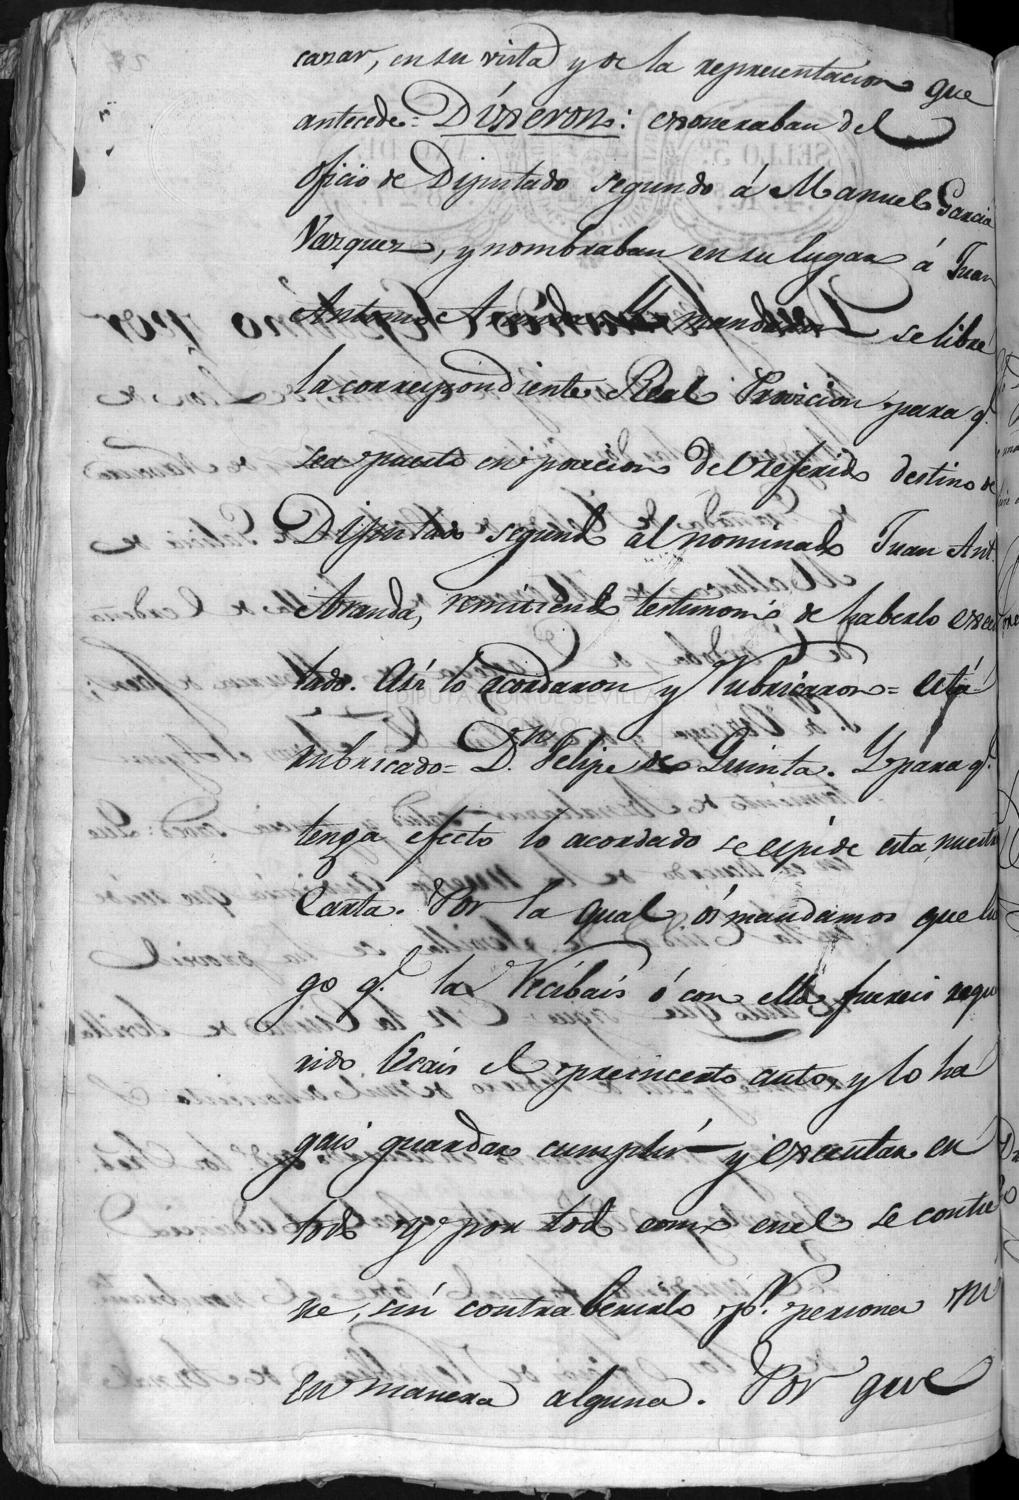 cazar, en su vista y de la representacion que
antecede = Dixeron: exoneraban del
oficio de Diputado segundo á Manuel Garcia
Vazquez, y nombraban en su lugar á Juan
Antonio Aranda mandaron se libre
la correspondiente Real Provicion para q.
sea puesto en posecion del referido destino de
Diputado segundo al nominado Juan Ant.
Aranda, remitiendo testimonio de haberlo execu
tado. Asi lo acordaron y Rubricaron = está
rubricado = D.n Felipe de Quinta. Y para q.
tenga efecto lo acordado se espide esta nuestra
Carta. Por la qual ós mandamos que lue
go q.e la Recibais ó con ella fuereis reque
rido Veais el preincerto auto, y lo ha
gais guardar cumplir y executar en
todo y por todo como en el se contie
ne, sin contrabenirlo p.r persona ni
en manera alguna. Por que